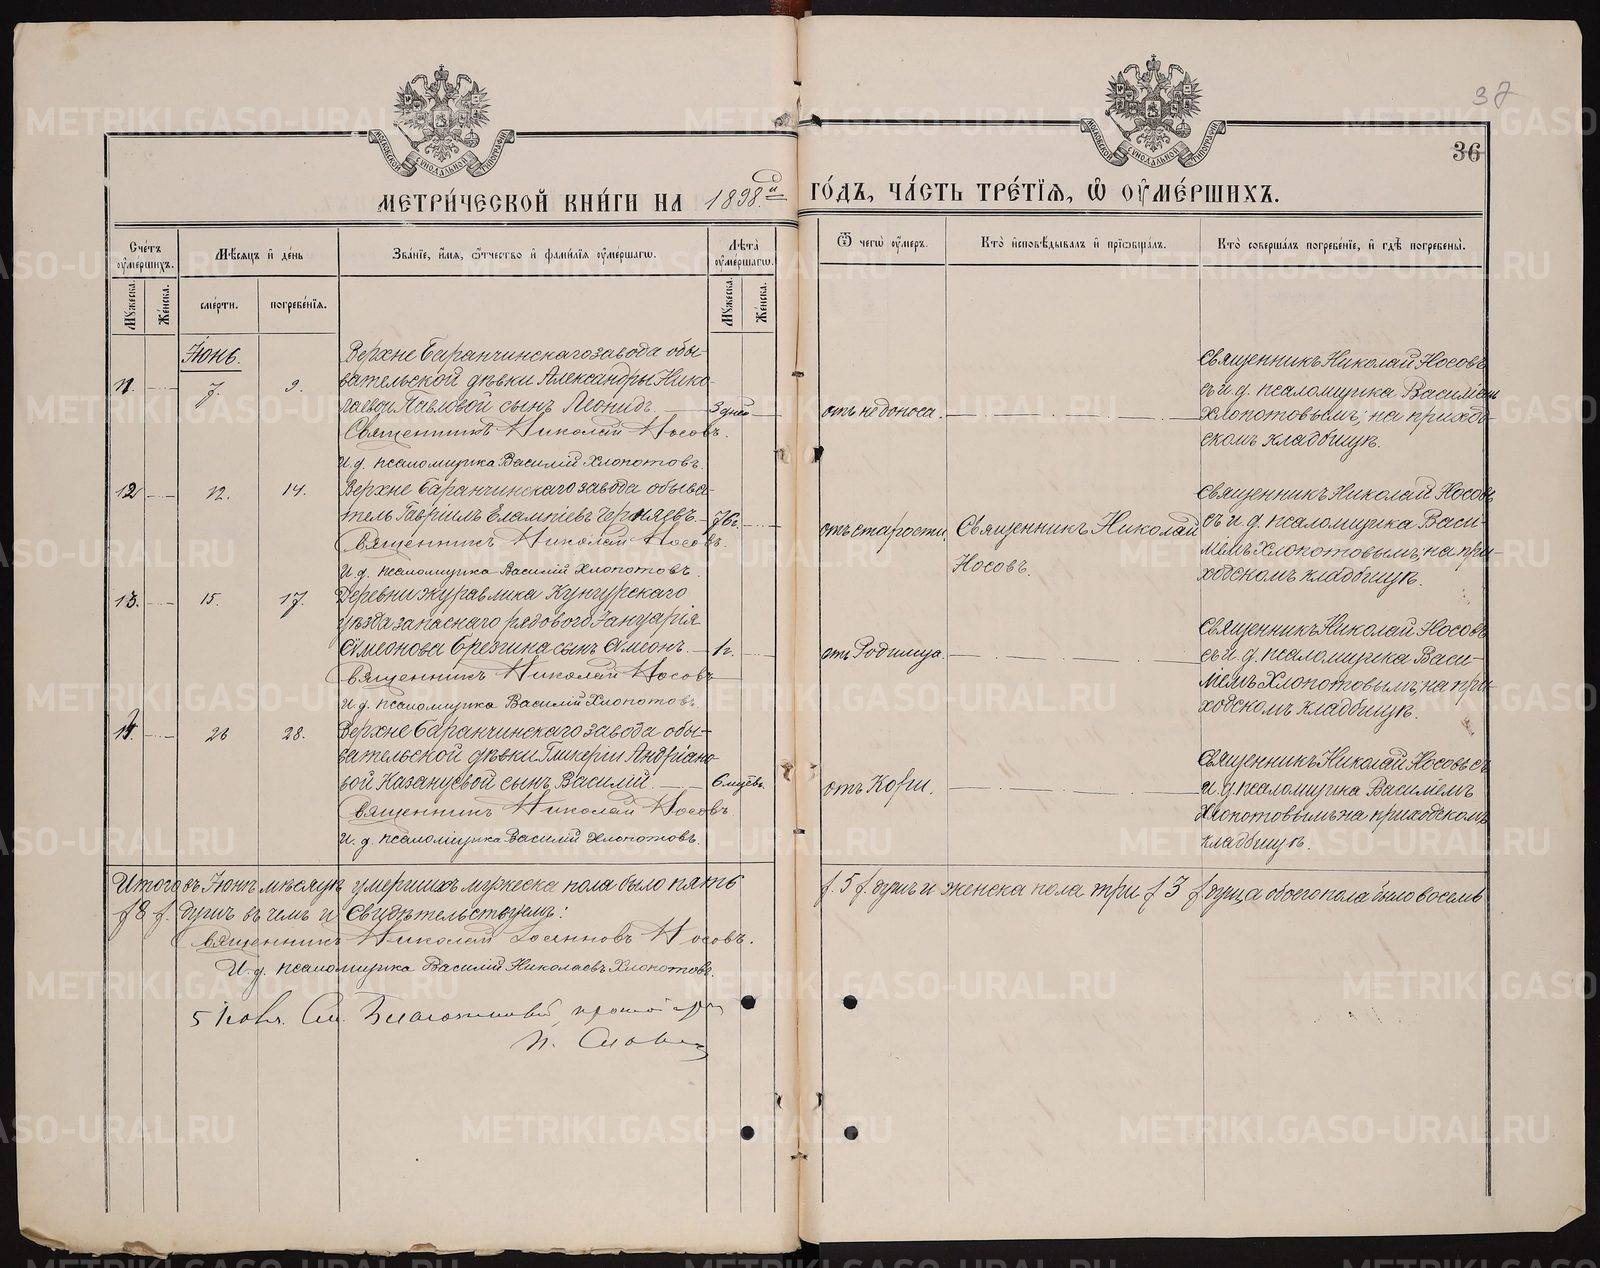 37
36
МЕТРИ́ЧЕСКОЙ КНИ́ГИ НА 1898й ГО́ДЪ, ЧА́СТЬ ТРЕ́ТІѦ, Ѽ ОУМЕ́РШИХЪ.
Сче́тъ оу҆ме́ршихъ.
Мꙋжеска.
Же́нска.
Мѣ́сѧцъ и҆ де́нь
сме́рти.
погребе́нїѧ.
Зва́нїе, и҆́мѧ, ѻ҆́тчество и҆ фами́лїѧ оу҆ме́ршагѡ.
Лѣ́та оу҆ме́ршагѡ.
Мꙋжеска.
Же́нска.
Ѿ чегѡ̀ оу҆́меръ.
Кто̀ и҆сповѣ́дывалъ и҆ прїѡбща́лъ.
Кто̀ соверша́лъ погребе́нїе, и҆ гдѣ̀ погребены̀.
Іюнь.
11
7.
9.
Верхне Баранчинскаго завода обы-
вательской дѣвки Александры Нико-
лаевой Павловой сынъ Леонидъ.
3 дней
Священникъ Николай Носовъ.
И. д. псаломщика Василій Хлопотовъ.
отъ недоноса.
Священникъ Николай Носовъ
съ и. д. псаломщика Василіем
Хлопотовымъ; на приход-
скомъ кладбищѣ.
12
12.
14.
Верхне Баранчинскаго завода обыва-
тель Гавріилъ Евлампіевъ Черняевъ.
76 г.
Священникъ Николай Носовъ.
И. д. псаломщика Василій Хлопотовъ.
отъ старости,
Священникъ Николай
Носовъ.
Священникъ Николай Носовъ
съ и. д. псаломщика Васи-
ліемъ Хлопотовымъ; на при-
ходскомъ кладбищѣ.
13.
15.
17.
Деревни Журавлика Кунгурскаго
уѣзда запаснаго рядового Іануарія
Симеонова Брезгина сынъ Симеонъ.
1 г.
Священникъ Николай Носовъ
И. д. псаломщика Василій Хлопотовъ.
отъ Родимца.
Священникъ Николай Носовъ
съ и. д. псаломщика Васи-
ліемъ Хлопотовымъ; на при-
ходскомъ кладбищѣ.
14.
26
28.
Верхне Баранчинскаго завода обы-
вательской дѣвки Гликеріи Андріано-
вой Казанцевой сынъ Василій
6 мцевъ
Священникъ Николай Носовъ.
И. д. псаломщика Василій Хлопотовъ.
отъ Кори.
Священникъ Николай Носовъ съ
и. д. псаломщика Василіемъ
Хлопотовымъ на приходскомъ
кладбищѣ.
Итого въ Іюнѣ мѣсяцѣ умершихъ мужеска пола было пять f. 5 f. душъ и женска пола три f 3 f душа обоего пола было восемь
f 8 f. душъ въ чемъ и Свидѣтельствуемъ:
Священникъ Николай Іоанновъ Носовъ.
И. д. псаломщика Василій Николаевъ Хлопотовъ.
5